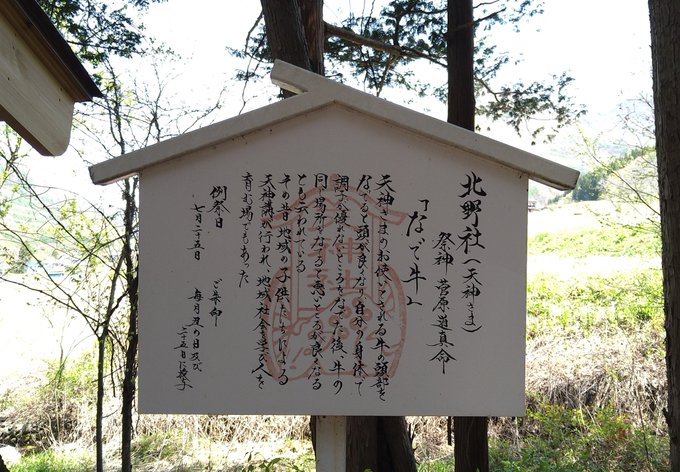 北野社（天神さま）
祭神 菅原道真命
「なで牛」
天神さまのお使いとされる牛の頭部を
なでると頭が良くなり、自分の身体で
調子が優れんところをなでた後、牛の
同じ場所をなでると悪いところが良くなる
とも云われている
その昔、地域の子供たちによる
天神講が行なわれ、地域社会を学び人を
育む場でもあった
例祭日
七月二十五日
ご朱印
毎月丑の日及び
二十五日に授与